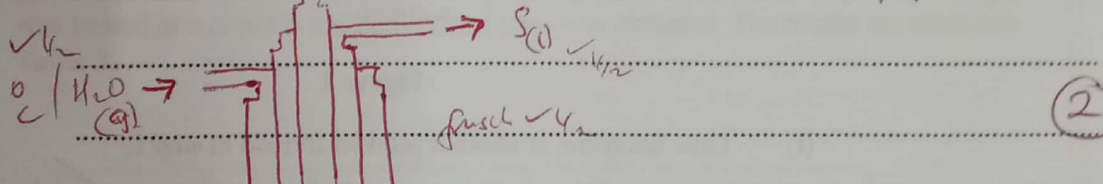 ✓½ → S(l) ✓½
H₂O →
frasch ✓½
2